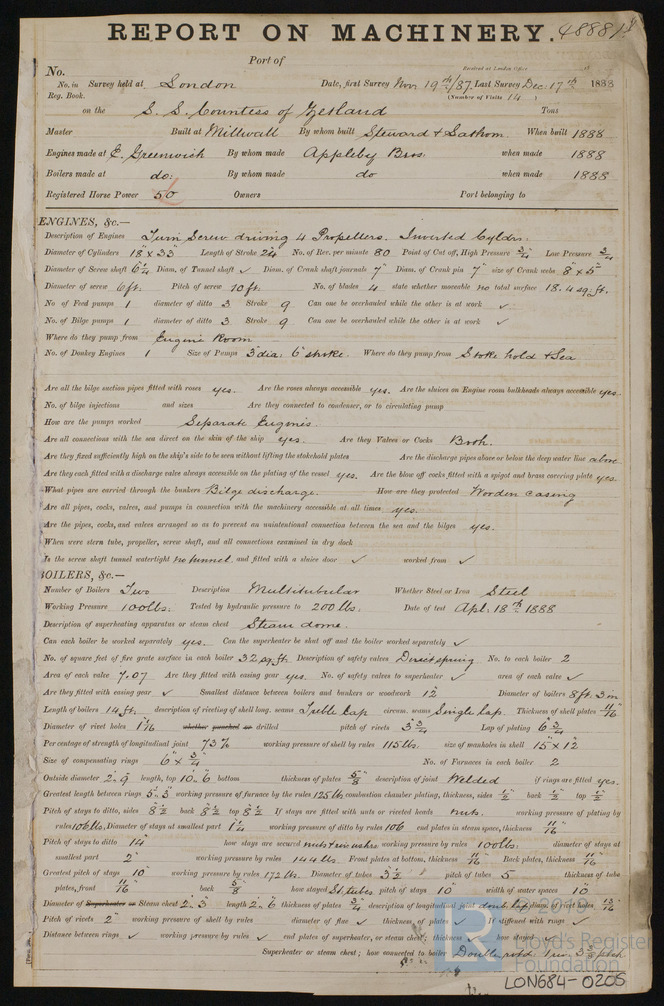 REPORT ON MACHINERY. 4888/
Port of
No. Received at London Office
No. in Survey held at London Date, first Survey Nov 19th/87. Last Survey Dec. 17th 1888
Reg. Book. (Number of Visits 14 )
on the S. S. Countess of Zetland Tons
Master Built at Millwall By whom built Steward & Latham When built 1888
Engines made at E. Greenwich By whom made Appleby Bros. when made 1888
Boilers made at do: By whom made do when made 1888
Registered Horse Power 50 Owners Port belonging to
ENGINES, &c.—
Description of Engines Twin Screw driving 4 Propellers. Inverted Cyldrs:
Diameter of Cylinders 18" x 33" Length of Stroke 24" No. of Rev. per minute 80 Point of Cut off, High Pressure 3/4 Low Pressure 3/4
Diameter of Screw shaft 6 1/4 Diam. of Tunnel shaft ✓ Diam. of Crank shaft journals 7" Diam. of Crank pin 7" size of Crank webs 8 x 5"
Diameter of screw 6 ft. Pitch of screw 10 ft. No. of blades 4 state whether moveable no total surface 18.4 sq. ft.
No. of Feed pumps 1 diameter of ditto 3 Stroke 9 Can one be overhauled while the other is at work ✓
No. of Bilge pumps 1 diameter of ditto 3 Stroke 9 Can one be overhauled while the other is at work ✓
Where do they pump from Engine Room
No. of Donkey Engines 1 Size of Pumps 3" dia: 6" stroke. Where do they pump from Stoke hold & Sea
Are all the bilge suction pipes fitted with roses yes. Are the roses always accessible yes. Are the sluices on Engine room bulkheads always accessible yes.
No. of bilge injections and sizes Are they connected to condenser, or to circulating pump
How are the pumps worked Separate Engines.
Are all connections with the sea direct on the skin of the ship yes. Are they Valves or Cocks Both.
Are they fixed sufficiently high on the ship's side to be seen without lifting the stokehold plates Are the discharge pipes above or below the deep water line above
Are they each fitted with a discharge valve always accessible on the plating of the vessel yes. Are the blow off cocks fitted with a spigot and brass covering plate yes.
What pipes are carried through the bunkers Bilge discharge. How are they protected Wooden casing
Are all pipes, cocks, valves, and pumps in connection with the machinery accessible at all times yes.
Are the pipes, cocks, and valves arranged so as to prevent an unintentional connection between the sea and the bilges yes.
When were stern tube, propeller, screw shaft, and all connections examined in dry dock
Is the screw shaft tunnel watertight no tunnel. and fitted with a sluice door ✓ worked from ✓
BOILERS, &c.—
Number of Boilers Two Description Multitubular Whether Steel or Iron Steel
Working Pressure 100 lbs. Tested by hydraulic pressure to 200 lbs. Date of test Apl. 18th 1888
Description of superheating apparatus or steam chest Steam dome.
Can each boiler be worked separately yes. Can the superheater be shut off and the boiler worked separately ✓
No. of square feet of fire grate surface in each boiler 32 sq. ft. Description of safety valves Direct spring No. to each boiler 2
Area of each valve 7.07 Are they fitted with easing gear yes. No. of safety valves to superheater ✓ area of each valve ✓
Are they fitted with easing gear ✓ Smallest distance between boilers and bunkers or woodwork 12" Diameter of boilers 8 ft. 3 in
Length of boilers 14 ft. description of riveting of shell long. seams Treble Lap circum. seams Single lap. Thickness of shell plates 11/16"
Diameter of rivet holes 1 1/16 whether punched or drilled pitch of rivets 3 3/4 Lap of plating 6 3/4
Per centage of strength of longitudinal joint 73% working pressure of shell by rules 115 lbs. size of manholes in shell 15" x 12"
Size of compensating rings 6" x 3/4" No. of Furnaces in each boiler 2
Outside diameter 2' 9" length, top 10' 6" bottom thickness of plates 5/8" description of joint Welded if rings are fitted yes.
Greatest length between rings 5' 3" working pressure of furnace by the rules 125 lb. combustion chamber plating, thickness, sides 1/2" back 1/2" top 1/2"
Pitch of stays to ditto, sides 8 1/2" back 8 1/2" top 8 1/2" If stays are fitted with nuts or riveted heads nuts. working pressure of plating by
rules 106 lbs. Diameter of stays at smallest part 1 1/4" working pressure of ditto by rules 106 end plates in steam space, thickness 11/16"
Pitch of stays to ditto 14" how stays are secured nuts & washrs working pressure by rules 100 lbs: diameter of stays at
smallest part 2" working pressure by rules 144 lbs. Front plates at bottom, thickness 11/16" Back plates, thickness 11/16"
Greatest pitch of stays 10" working pressure by rules 172 lbs. Diameter of tubes 3 1/2" pitch of tubes 5 thickness of tube
plates, front 11/16" back 5/8" how stayed St. tubes pitch of stays 10" width of water spaces 10"
Diameter of Superheater or Steam chest 2' 3" length 2' 6" thickness of plates 3/4" description of longitudinal joint doub. lap diam. of rivet holes 13/16"
Pitch of rivets 2" working pressure of shell by rules diameter of flue ✓ thickness of plates ✓ If stiffened with rings ✓
Distance between rings ✓ working pressure by rules ✓ end plates of superheater, or steam chest; thickness ✓ how stayed
Superheater or steam chest; how connected to boiler
© 2019
Lloyd's Register
Foundation
LON684-0205